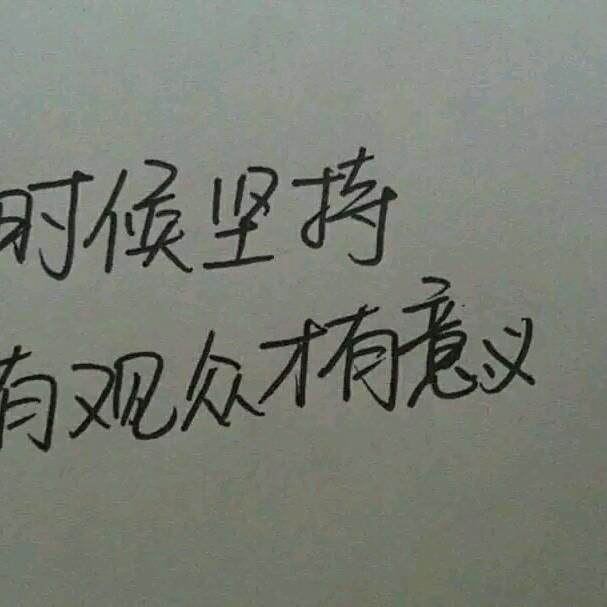 时候坚持
有观众才有意义